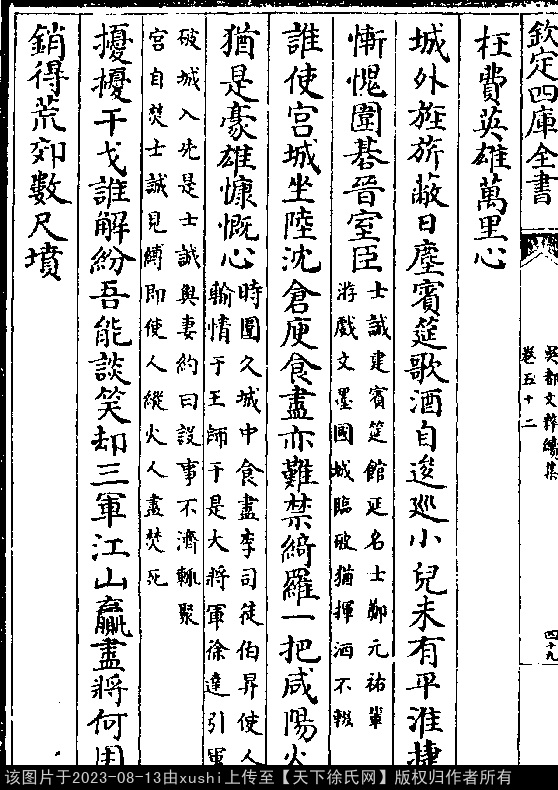 欽定四庫全書
吳都文粹續集
卷五十二
四十九
枉費英雄萬里心
城外旌旂蔽日塵賓筵歌酒自逡巡小兒未有平淮捷
慚愧圍碁晉室臣
士誠建賓筵館延名士鄭元祐輩
游戲文墨國城臨破猶揮洒不輟
誰使宮城坐陸沈倉庾食盡亦難禁綺羅一把咸陽火
猶是豪雄慷慨心
時圍久城中食盡李司徒伯昇使人
輸情于王師于是大將軍徐達引軍
破城入先是士誠與妻約曰設事不濟輙聚
宮自焚士誠見縛即使人縱火人盡焚死
擾擾干戈誰解紛吾能談笑却三軍江山贏盡將何用
銷得荒郊數尺墳
该图片于2023-08-13由xushi上传至【天下徐氏网】版权归作者所有